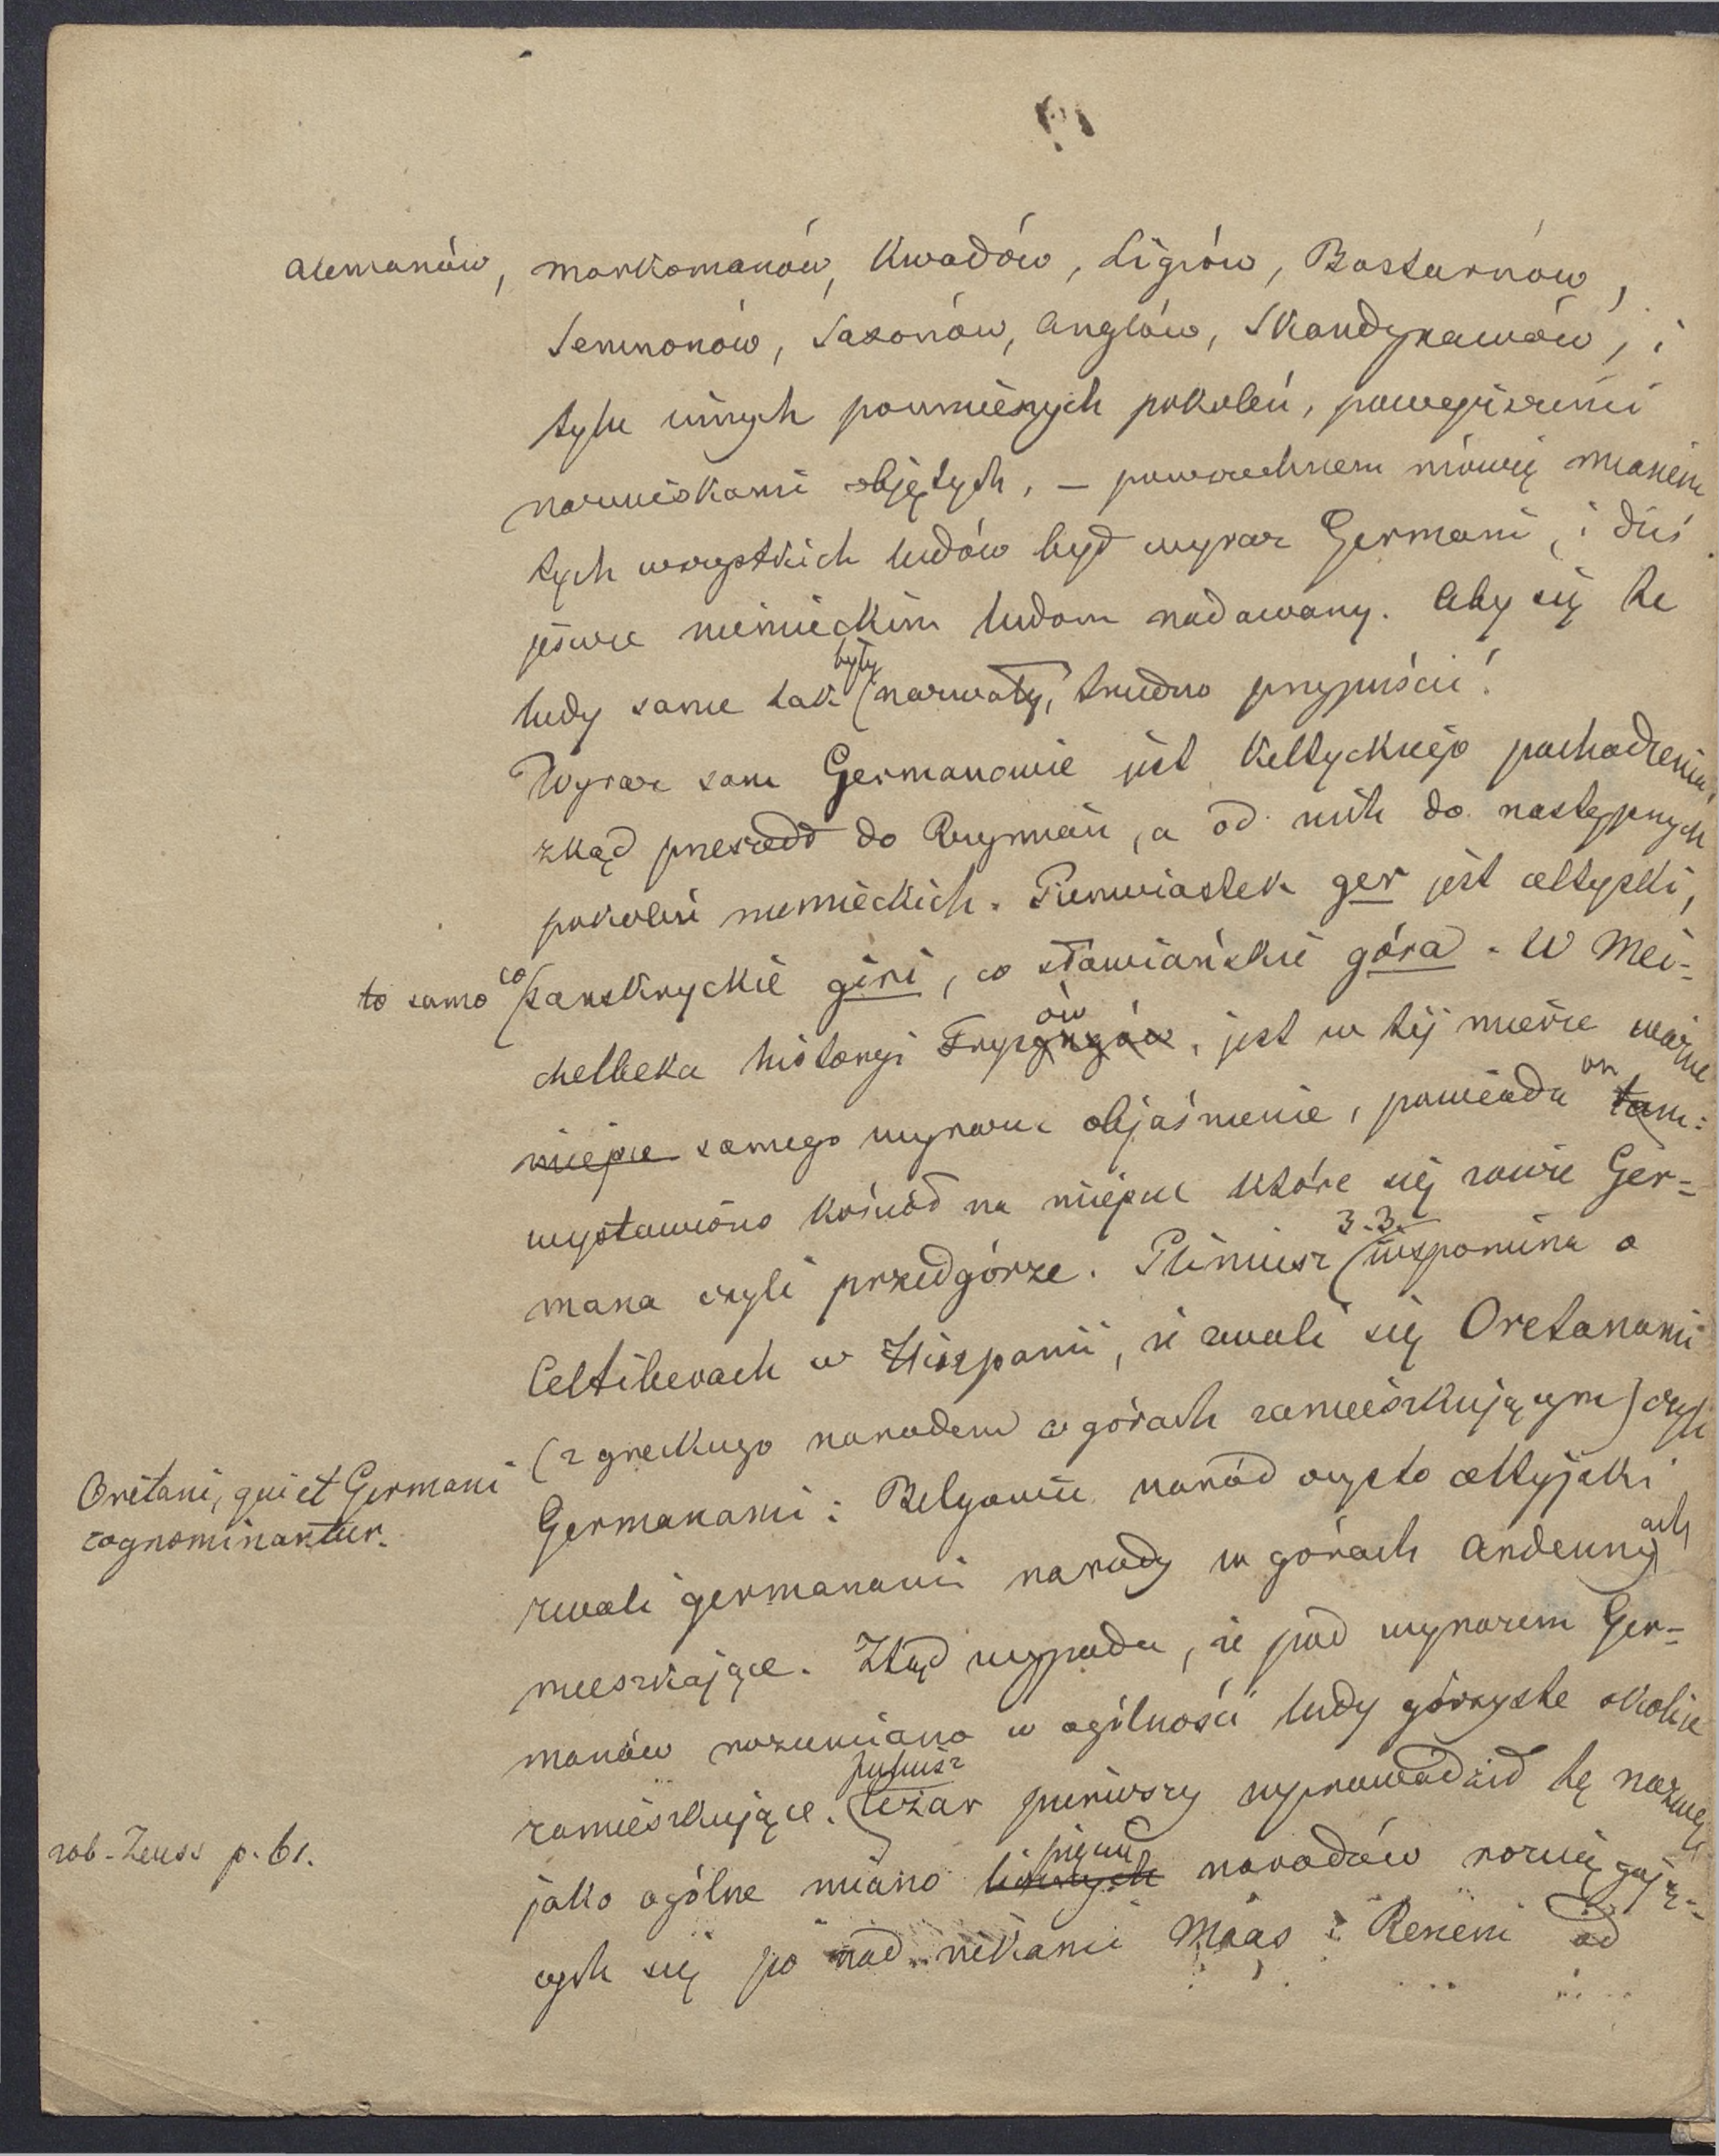 Alemanów, Markomanów, Kwadów, Ligiów, Bastarnów,
Semnonów, Saxonów, Anglów, Skandynawów, i
tylu innych pomniejszych pokoleń,
nazwiskami objętych, – powszechnem mówię mianem
tych wszystkich ludów był wyraz Germani, i dziś
jeszcze niemieckim ludom nadawany. Aby się te
ludy same tak były nazwały, trudno przypuścić!
Wyraz sam Germanowie jest keltyckiego pochodzenia,
zkąd przeszedł do Rzymian, a od nich do następnych
pokoleń niemieckich. Pierwiastek ger jest celtycki,
to samo co sanskryckie giri, co sławiańskie góra. W Mei-
chelbeka historyi Fryzów, jest w tej mierze ważne
miejsce samego wyrazu objaśnienie, powiada on tam:
wystawiono kościół na miejscu które się zowie Ger-
mana czyli przedgórze. Pliniusz 3.3. wspomina o
Celtiberach w Hiszpanii, że zwali się Oretanami
(z greckiego narodem w górach zamieszkującym) czyli
Oretani, qui et Germani
cognominantur.
Germanami: Belgowie naród czysto celtyjski
zwali germanami narody w górach Ardennach
mieszkające. Ztąd wypada, że pod wyrazem Ger-
manów rozumiano w ogólności ludy górzyste okolice
zamieszkujące. Juliusz Cezar pierwszy wprowadził tę nazwę
zob. Zeuss p. 61.
jako ogólne miano licznych narodów rozciągają-
cych się po nad rzekami Maas i Renem od